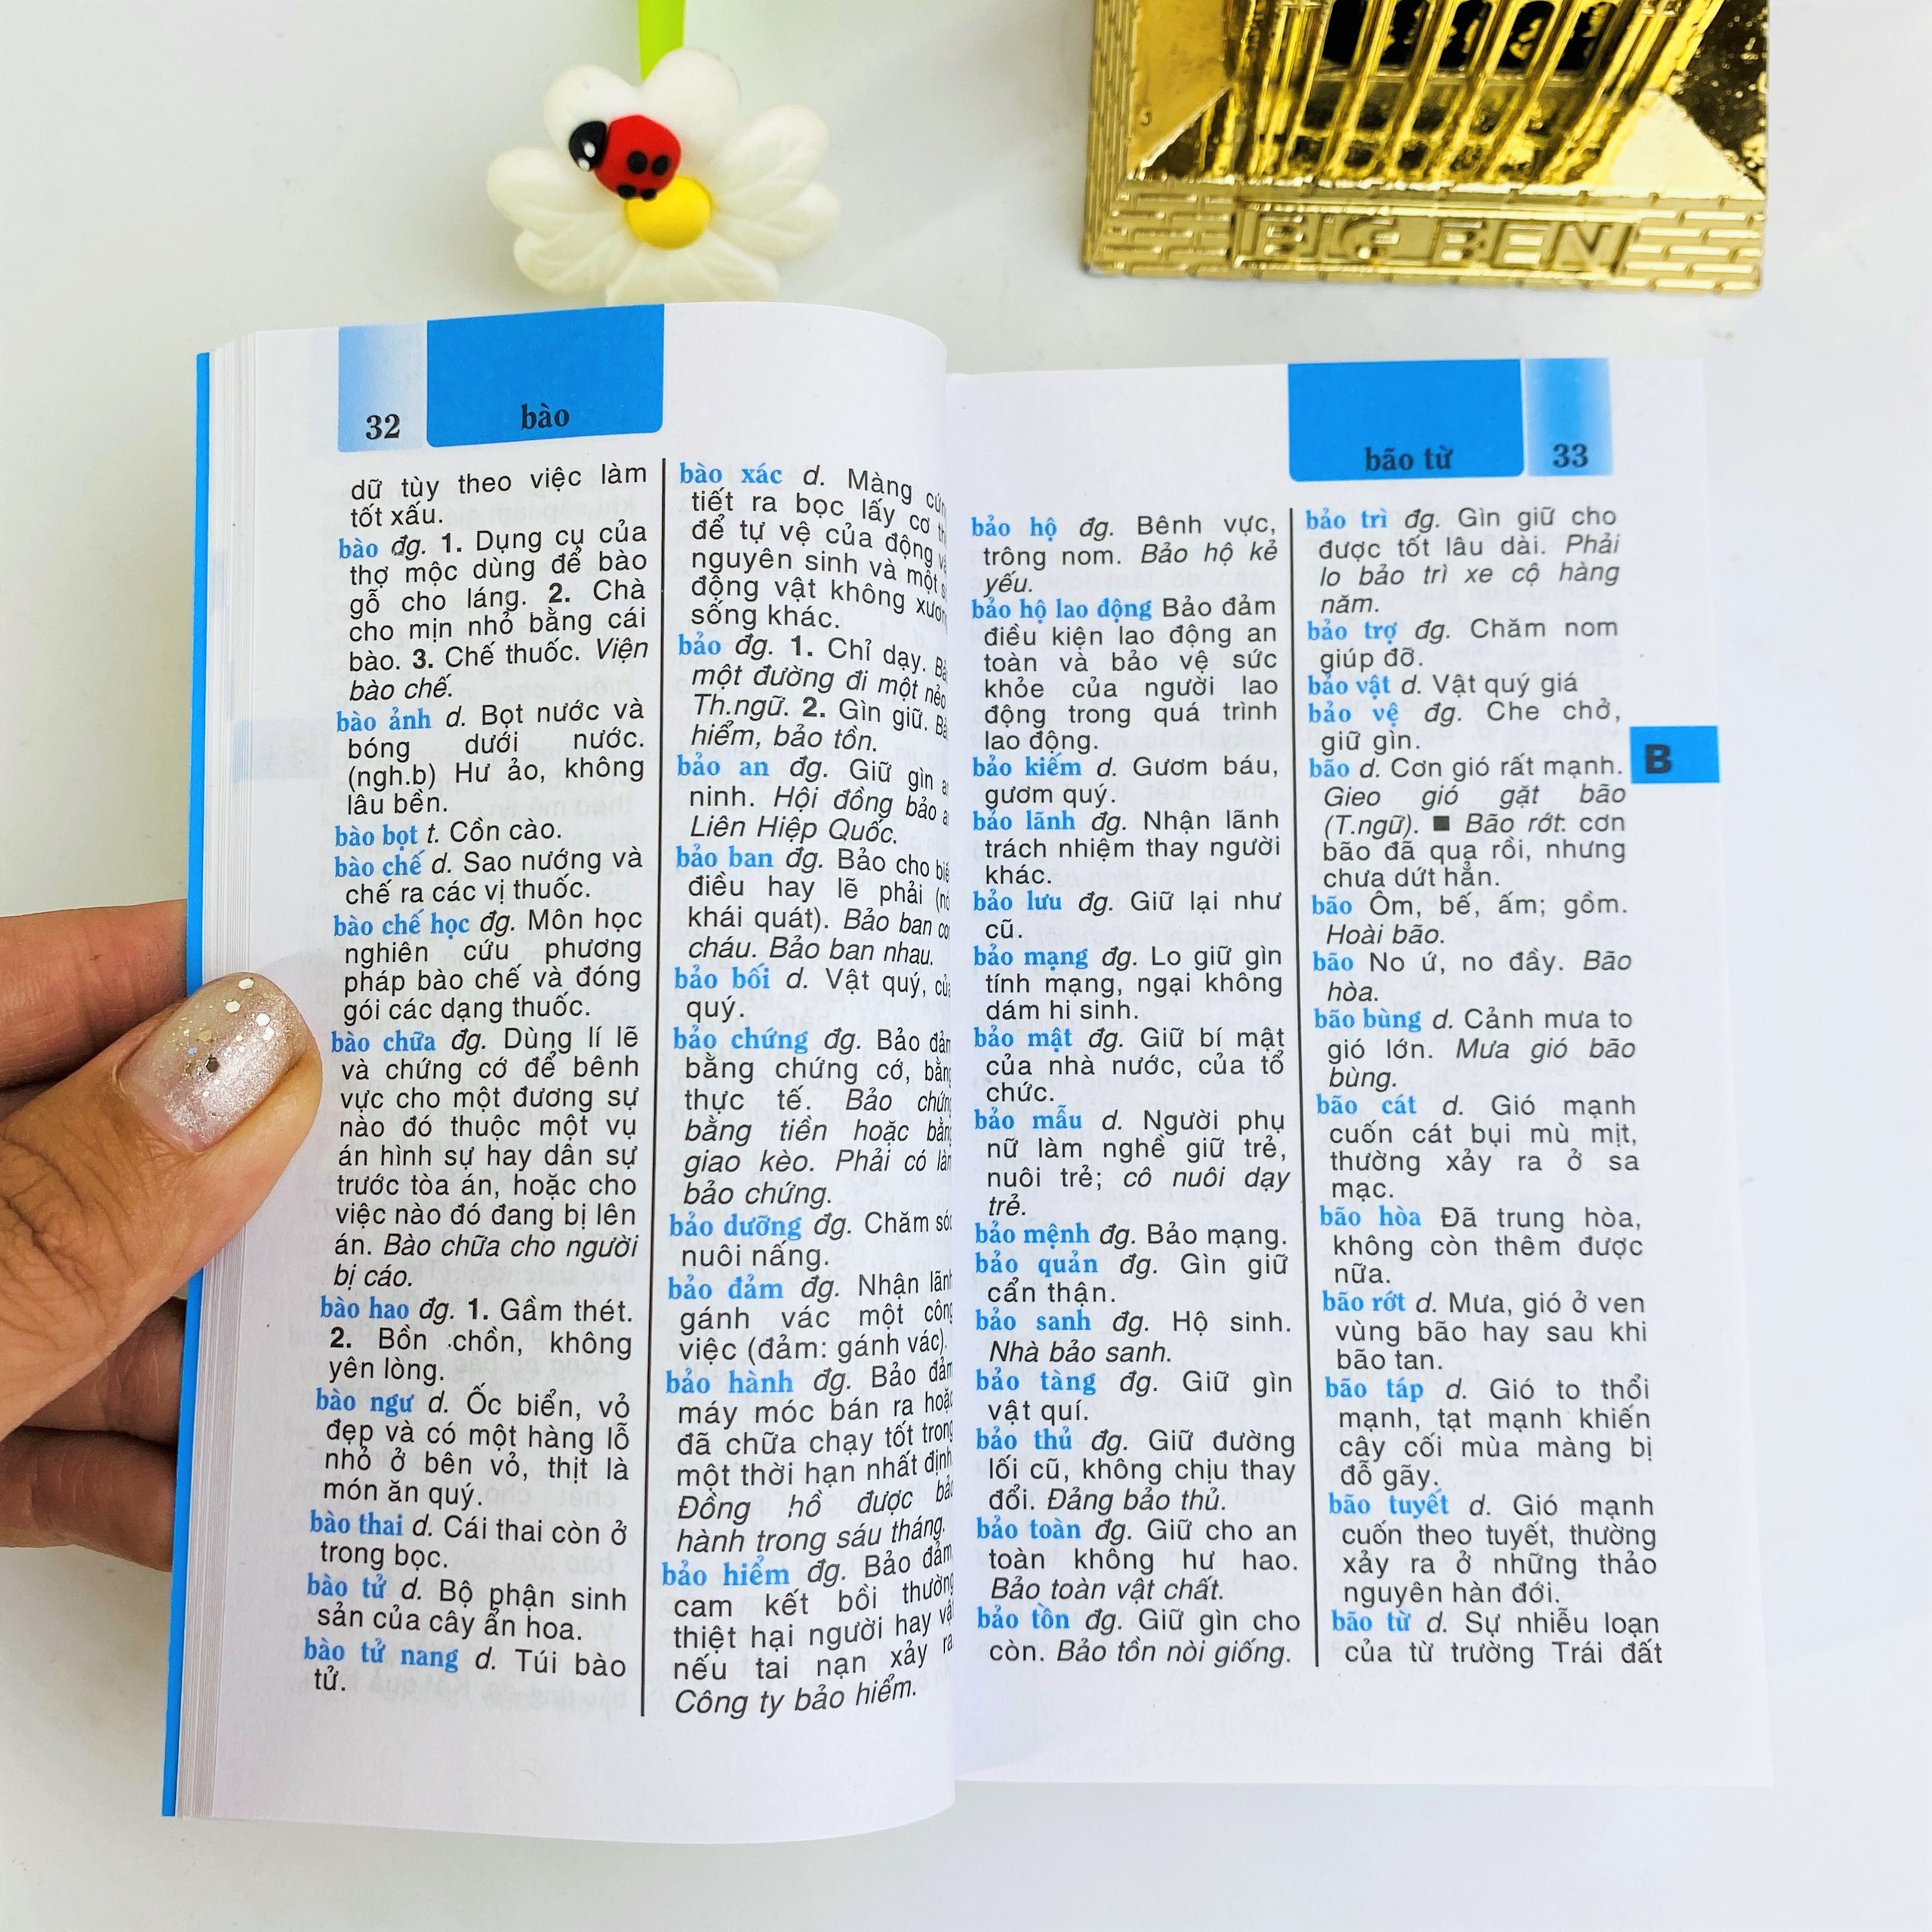 BIG BEN
32 bào
dữ tùy theo việc làm
tốt xấu.
bào đg. 1. Dụng cụ của
thợ mộc dùng để bào
gỗ cho láng. 2. Chà
cho mịn nhỏ bằng cái
bào. 3. Chế thuốc. Viện
bào chế.
bào ảnh d. Bọt nước và
bóng dưới nước.
(ngh.b) Hư ảo, không
lâu bền.
bào bọt t. Cồn cào.
bào chế d. Sao nướng và
chế ra các vị thuốc.
bào chế học đg. Môn học
nghiên cứu phương
pháp bào chế và đóng
gói các dạng thuốc.
bào chữa đg. Dùng lí lẽ
và chứng cớ để bênh
vực cho một đương sự
nào đó thuộc một vụ
án hình sự hay dân sự
trước tòa án, hoặc cho
việc nào đó đang bị lên
án. Bào chữa cho người
bị cáo.
bào hao đg. 1. Gầm thét.
2. Bồn chồn, không
yên lòng.
bào ngư d. Ốc biển, vỏ
đẹp và có một hàng lỗ
nhỏ ở bên vỏ, thịt là
món ăn quý.
bào thai d. Cái thai còn ở
trong bọc.
bào tử d. Bộ phận sinh
sản của cây ẩn hoa.
bào tử nang d. Túi bào
tử.
bào xác d. Màng
tiết ra bọc lấy cơ
để tự vệ của động
nguyên sinh và một
động vật không
sống khác.
bảo đg. 1. Chỉ dạy.
một đường đi một nẻo
Th.ngữ. 2. Gìn giữ.
hiểm, bảo tồn.
bảo an đg. Giữ gìn
ninh. Hội đồng bảo
Liên Hiệp Quốc.
bảo ban đg. Bảo cho
điều hay lẽ phải
khái quát). Bảo ban
cháu. Bảo ban nhau.
bảo bối d. Vật quý,
quý.
bảo chứng đg. Bảo
bằng chứng cớ,
thực tế. Bảo
bằng tiền hoặc
giao kèo. Phải có
bảo chứng.
bảo dưỡng đg. Chăm
nuôi nấng.
bảo đảm đg. Nhận
gánh vác một
việc (đảm: gánh vác).
bảo hành đg. Bảo
máy móc bán ra
đã chữa chạy tốt
một thời hạn nhất
Đồng hồ được
hành trong sáu tháng.
bảo hiểm đg. Bảo
cam kết bồi
thiệt hại người hay
nếu tai nạn xảy ra.
Công ty bảo hiểm.
bão từ 33
bảo hộ đg. Bênh vực,
trông nom. Bảo hộ kẻ
yếu.
bảo hộ lao động Bảo đảm
điều kiện lao động an
toàn và bảo vệ sức
khỏe của người lao
động trong quá trình
lao động.
bảo kiếm d. Gươm báu,
gươm quý.
bảo lãnh đg. Nhận lãnh
trách nhiệm thay người
khác.
bảo lưu đg. Giữ lại như
cũ.
bảo mạng đg. Lo giữ gìn
tính mạng, ngại không
dám hi sinh.
bảo mật đg. Giữ bí mật
của nhà nước, của tổ
chức.
bảo mẫu d. Người phụ
nữ làm nghề giữ trẻ,
nuôi trẻ; cô nuôi dạy
trẻ.
bảo mệnh đg. Bảo mạng.
bảo quản đg. Gìn giữ
cẩn thận.
bảo sanh đg. Hộ sinh.
Nhà bảo sanh.
bảo tàng đg. Giữ gìn
vật quí.
bảo thủ đg. Giữ đường
lối cũ, không chịu thay
đổi. Đảng bảo thủ.
bảo toàn đg. Giữ cho an
toàn không hư hao.
Bảo toàn vật chất.
bảo tồn đg. Giữ gìn cho
còn. Bảo tồn nòi giống.
bảo trì đg. Gìn giữ cho
được tốt lâu dài. Phải
lo bảo trì xe cộ hàng
năm.
bảo trợ đg. Chăm nom
giúp đỡ.
bảo vật d. Vật quý giá
bảo vệ đg. Che chở,
giữ gìn.
bão d. Cơn gió rất mạnh.
Gieo gió gặt bão
(T.ngữ). ■ Bão rớt: cơn
bão đã qua rồi, nhưng
chưa dứt hẳn.
bão Ôm, bế, ấm; gồm.
Hoài bão.
bão No ứ, no đầy. Bão
hòa.
bão bùng d. Cảnh mưa to
gió lớn. Mưa gió bão
bùng.
bão cát d. Gió mạnh
cuốn cát bụi mù mịt,
thường xảy ra ở sa
mạc.
bão hòa Đã trung hòa,
không còn thêm được
nữa.
bão rớt d. Mưa, gió ở ven
vùng bão hay sau khi
bão tan.
bão táp d. Gió to thổi
mạnh, tạt mạnh khiến
cây cối mùa màng bị
đỗ gãy.
bão tuyết d. Gió mạnh
cuốn theo tuyết, thường
xảy ra ở những thảo
nguyên hàn đới.
bão từ d. Sự nhiễu loạn
của từ trường Trái đất
B